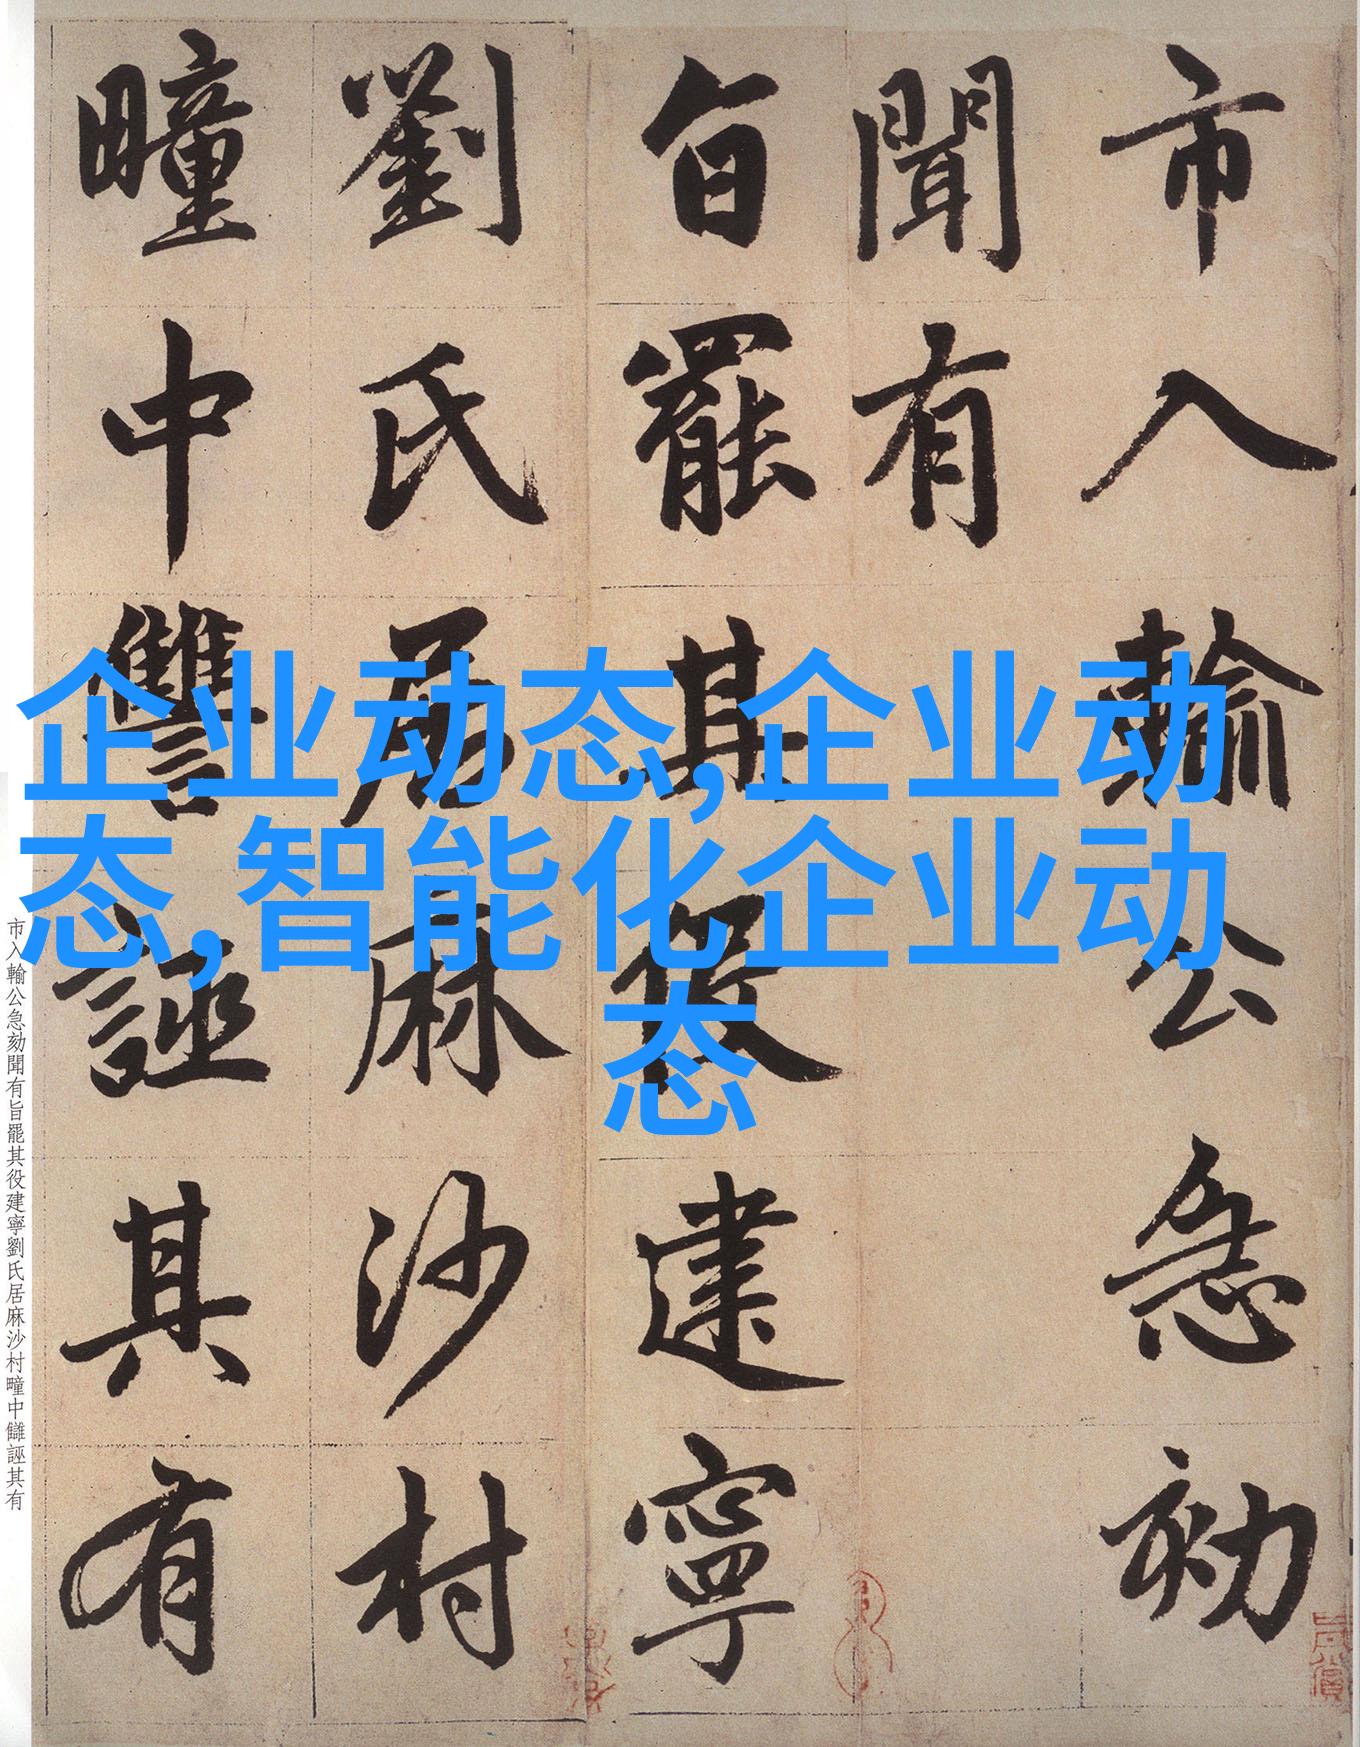 市入輸公急劾
聞有
旨罷其役建寧
劉氏居麻沙村
疃中讐誣其有
企业动态,企业动
态,智能化企业动
态
市入輸公急劾聞有旨罷其役建寧劉氏居麻沙村疃中讎誣其有